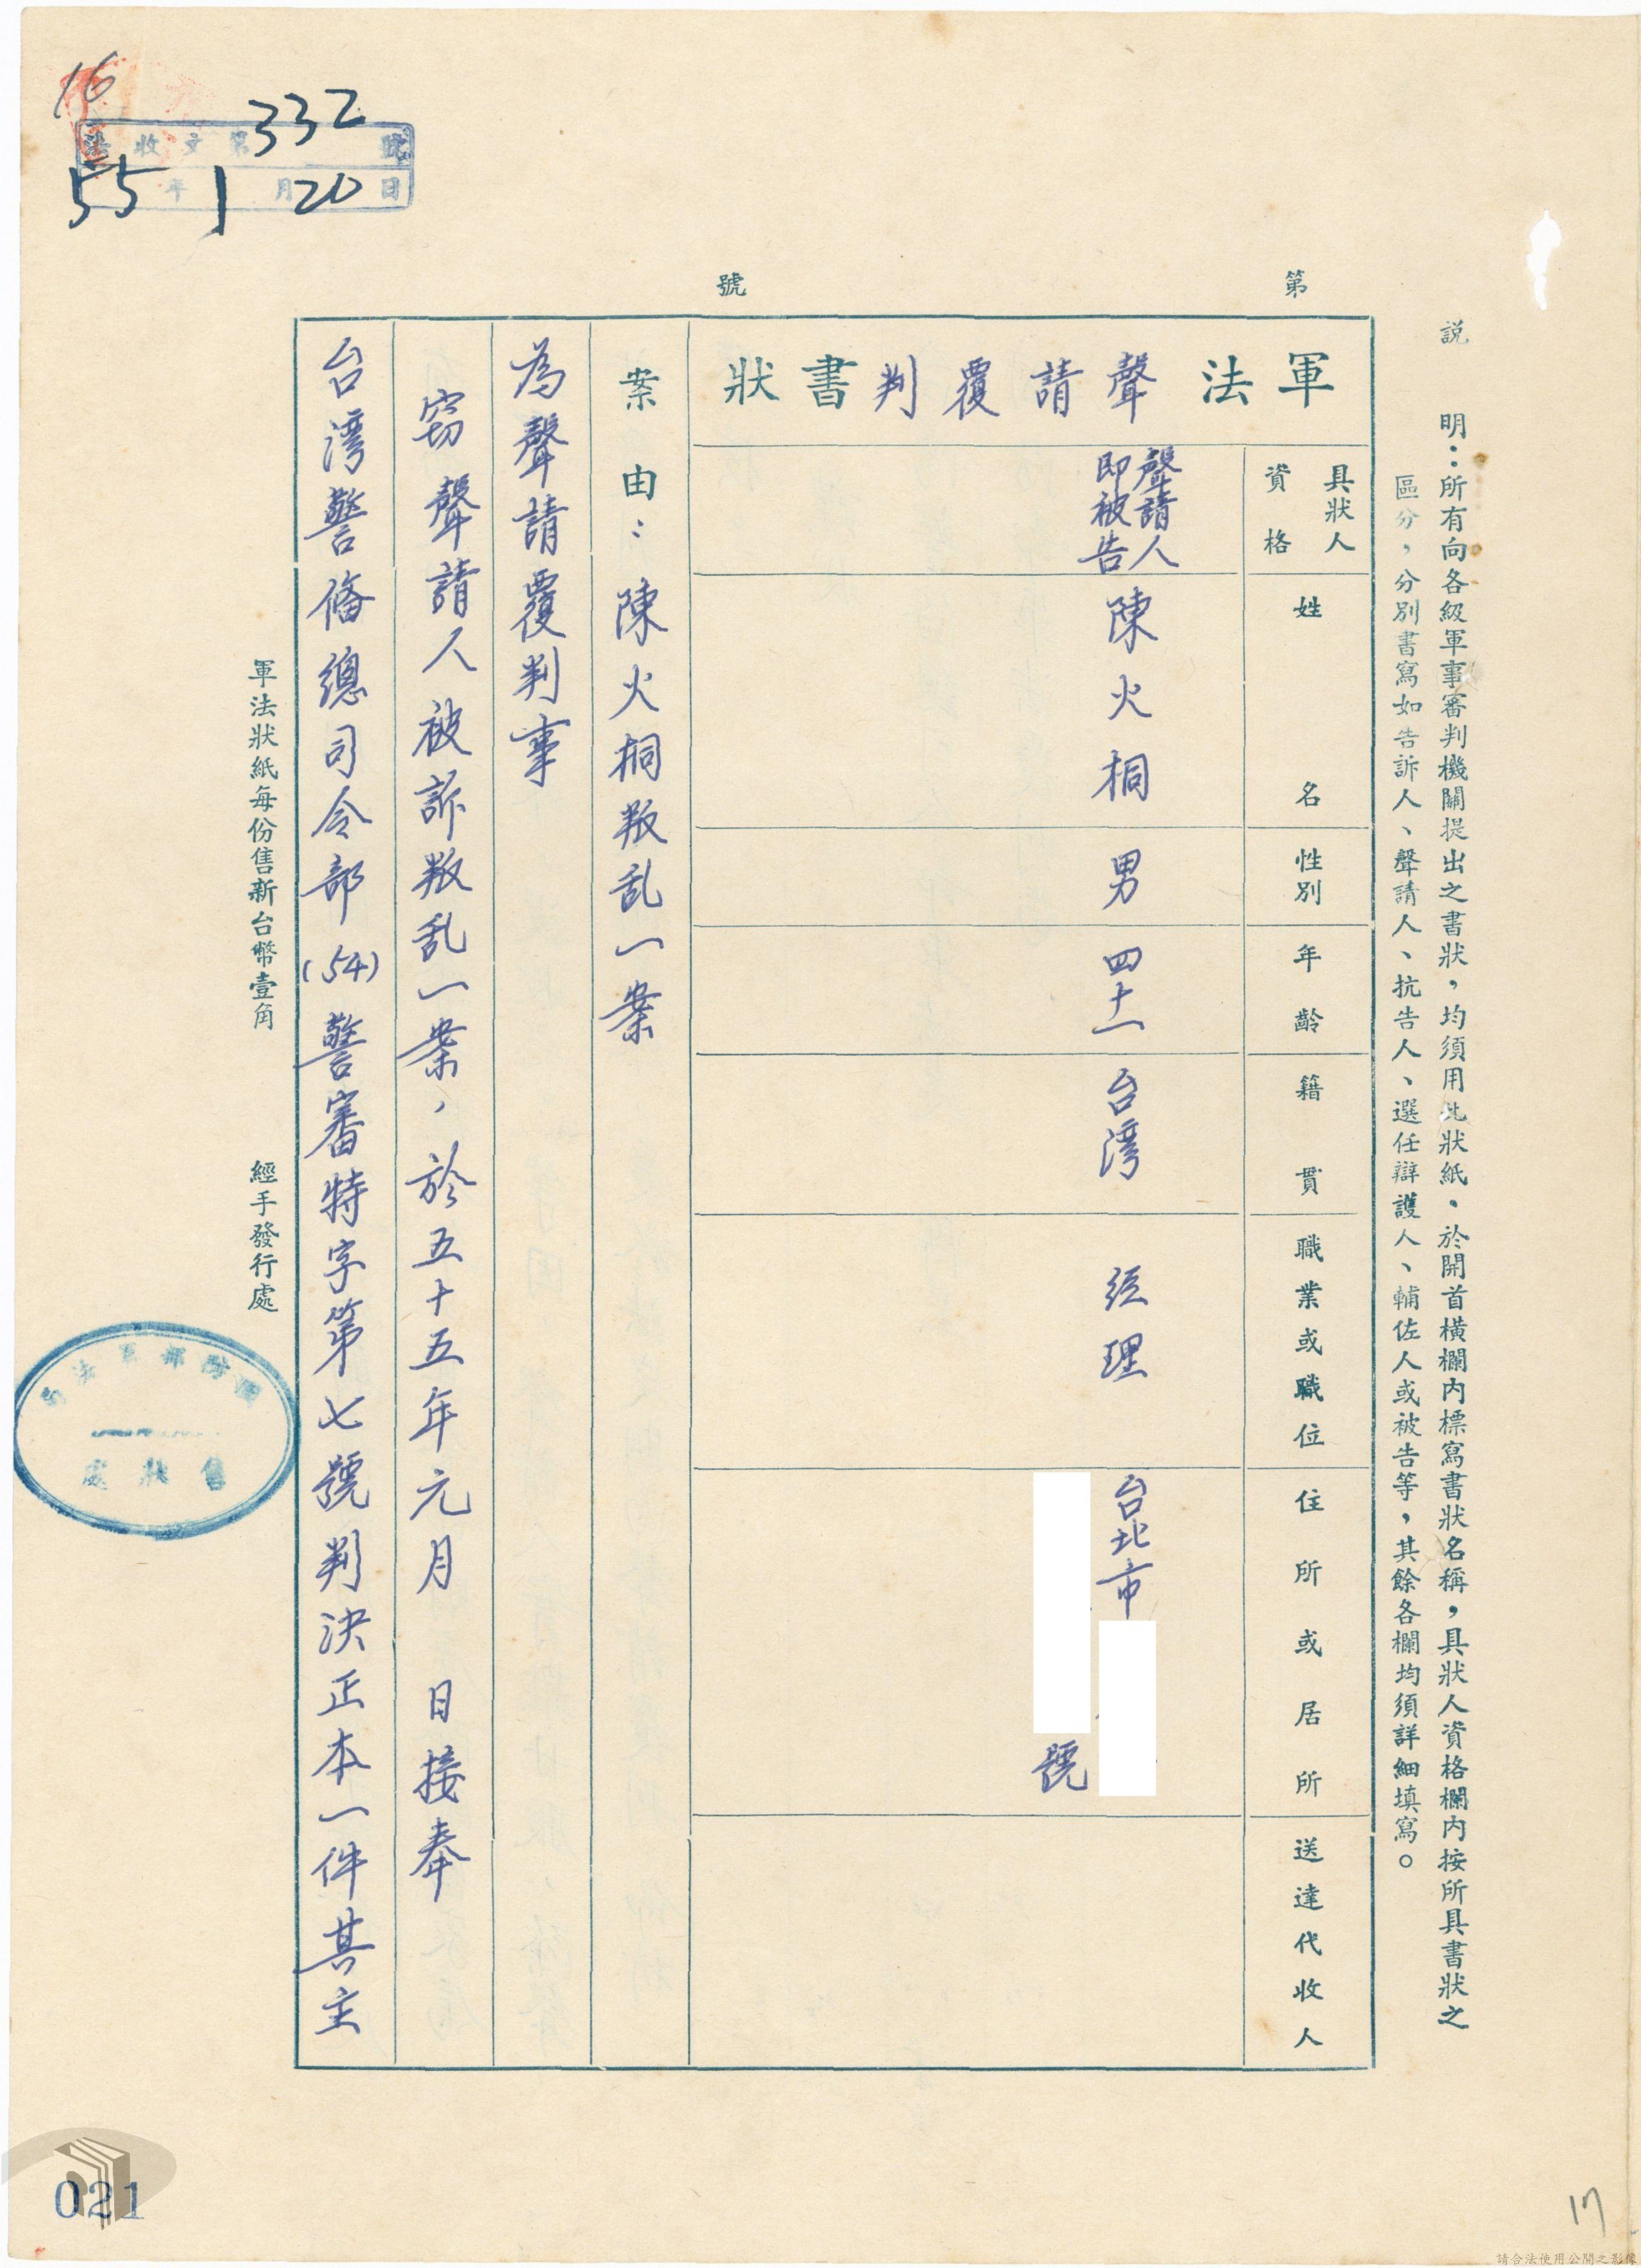 說　明：所有向各級軍事審判機關提出之書狀，均須用此狀紙。於開首橫欄內標寫書狀名稱，具狀人資格欄內按所具書狀之
區分，分別書寫如告訴人、聲請人、抗告人、選任辯護人、輔佐人或被告等，其餘各欄均須詳細填寫。
第　號
軍法聲請覆判書狀
具狀人資格
聲請人
即被告
姓名
陳火桐
性別
男
年齡
四十一
籍貫
台灣
職業或職位
經理
住所或居所
台北市
號
送達代收人
案由：陳火桐叛乱一案
為聲請覆判事
窃聲請人被訴叛乱一案，於五十五年元月　日接奉
台灣警俻總司令部(54)警審特字第七號判決正本一件其主
軍法狀紙每份售新台幣壹角　經手發行處
國防部軍法局
售狀處
16
332
收文第　號
55年1月20日
021
17
請合法使用公開之影像